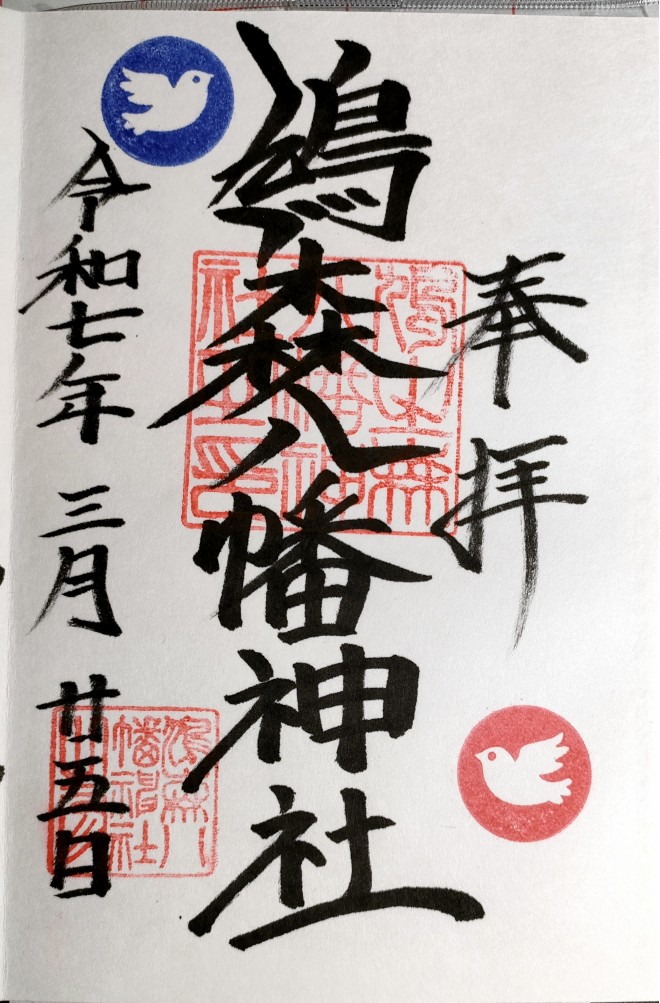 奉拝
鳩森八幡神社
令和七年 三月 廿五日
鳩之森
八幡神
社之印
鳩森八
幡神社